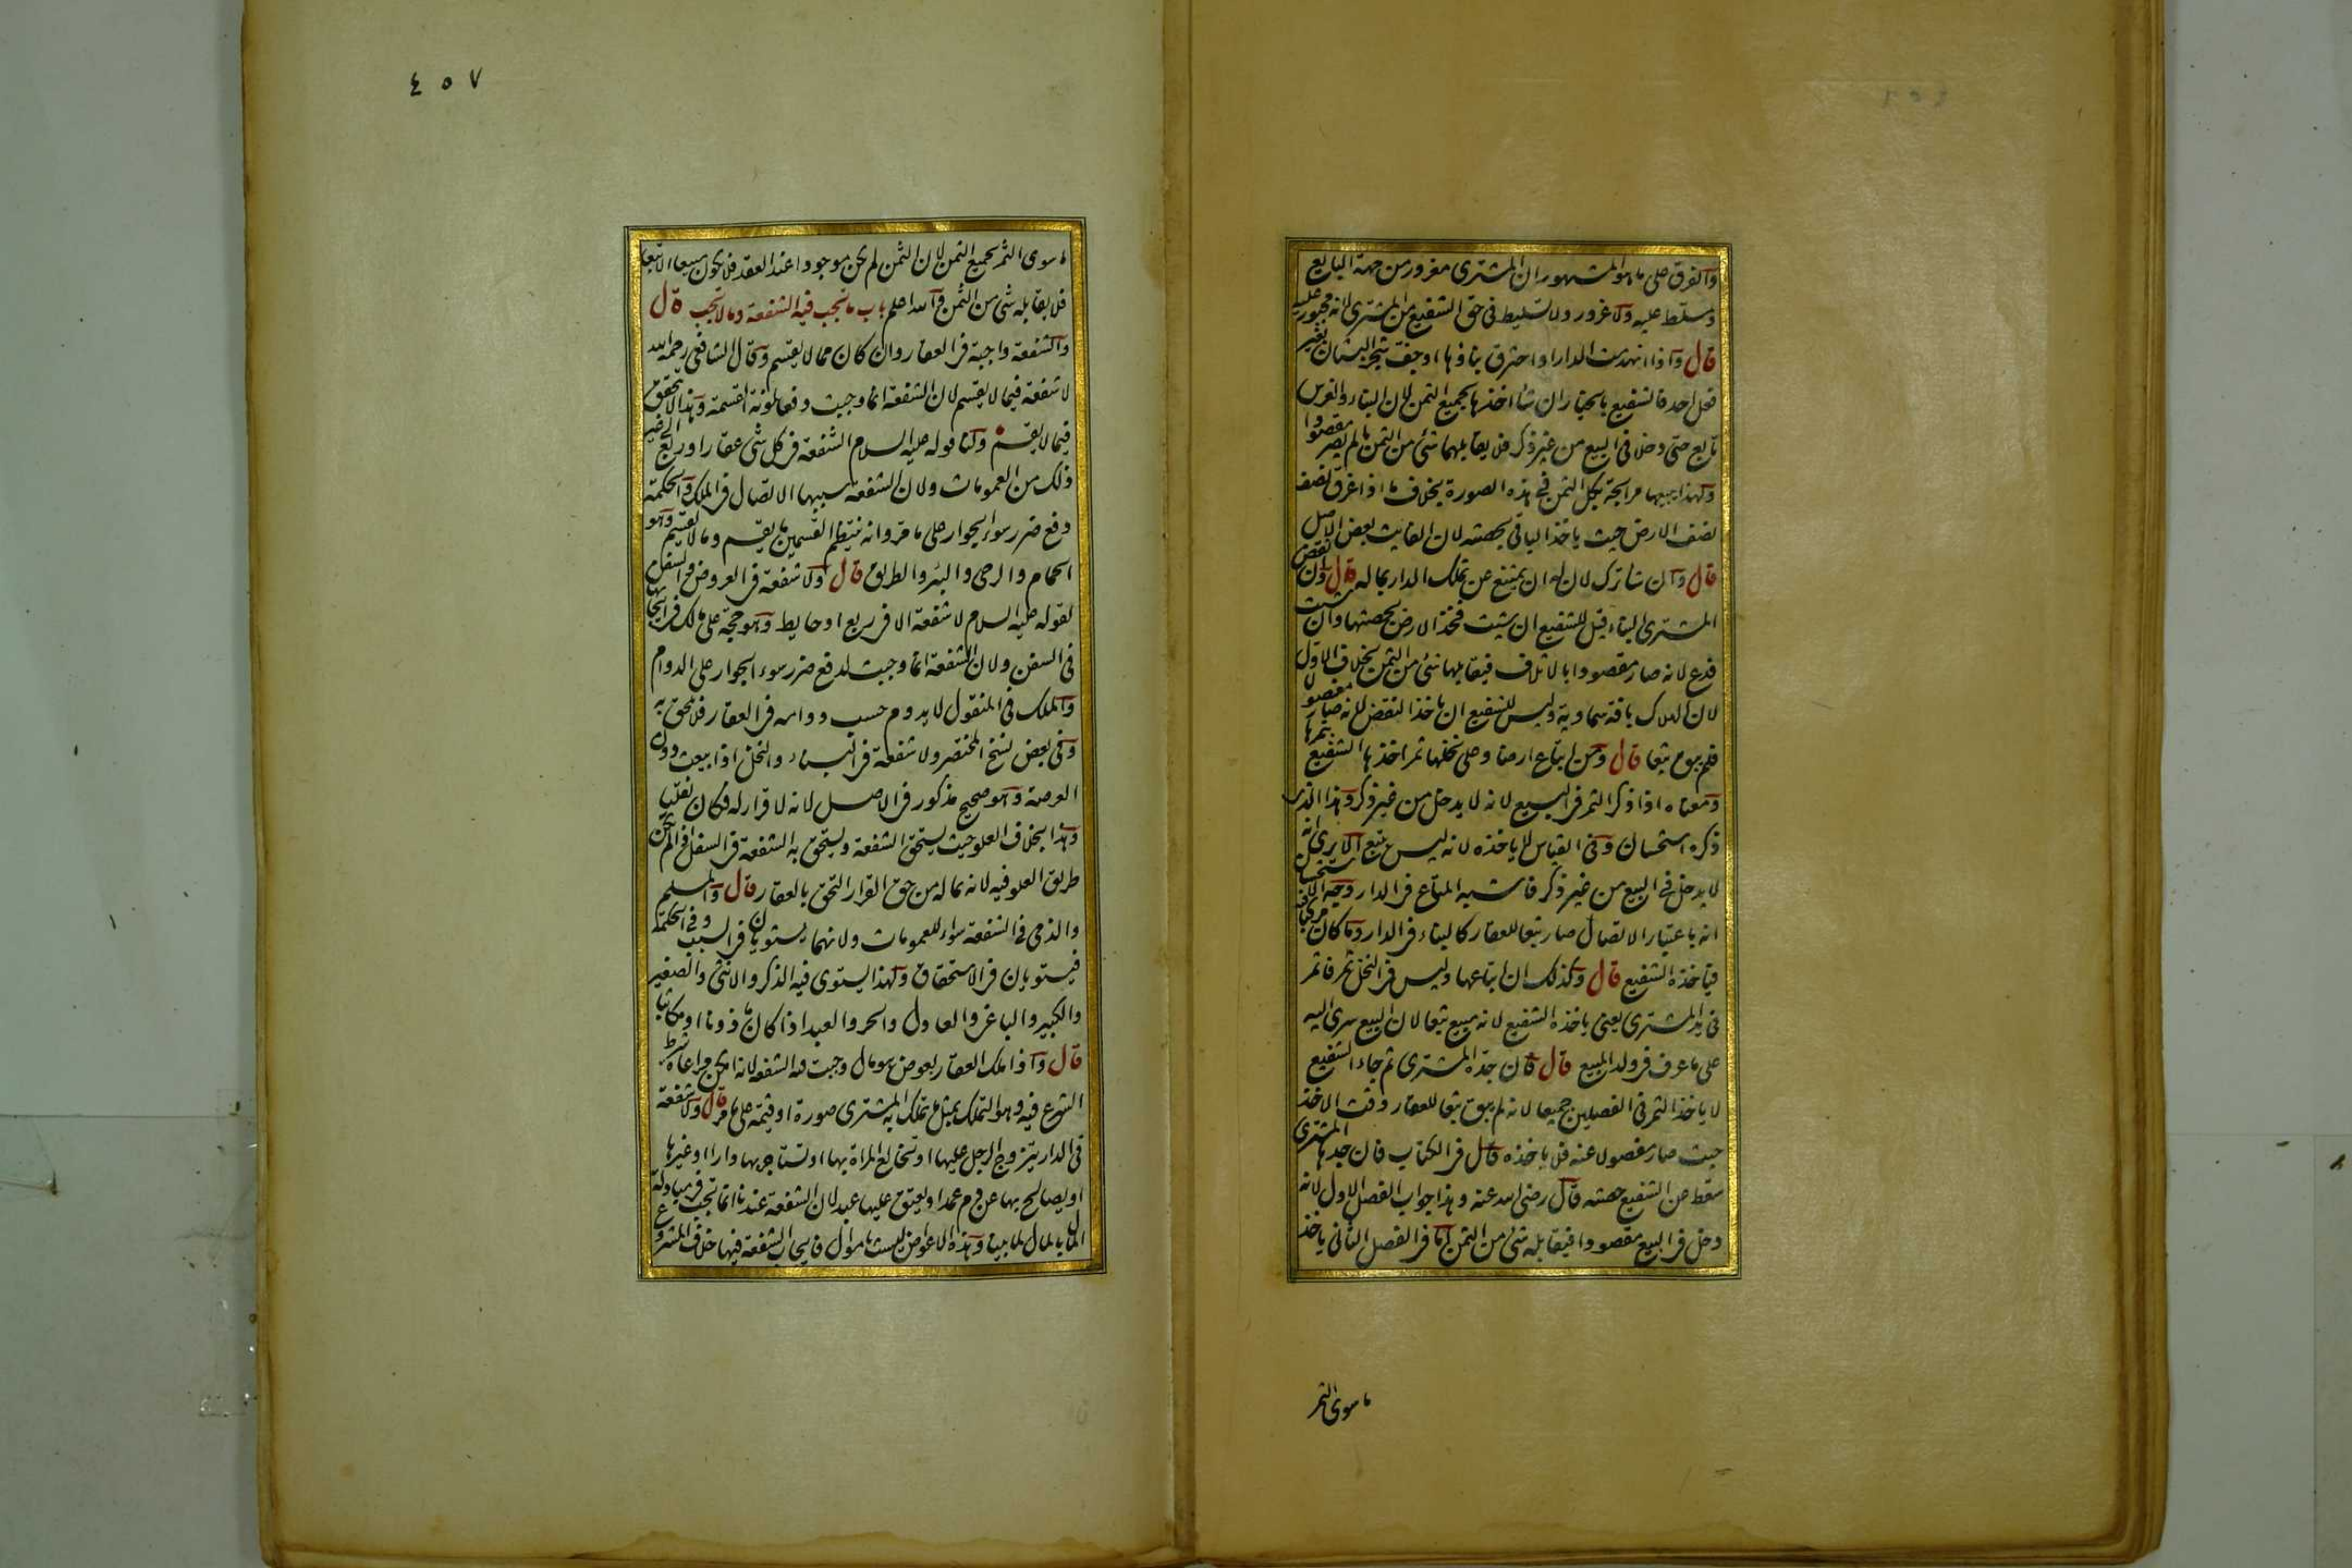 والفرق على ما هو المشهور ان المشترى مغرور من جهة البايع
ومسلط عليه ولا غرور ولا تسليط فى حق الشفيع من المشترى لانه مجبور عليه
قال واذا انهدمت الدار او احترق بناؤها او جف شجر البستان بغير
فعل احد فالشفيع بالخيار ان شاء اخذها بجميع الثمن لان البناء والغرس
تابع حتى دخلا فى البيع من غير ذكر فلا يقابلهما شئ من الثمن ما لم يصر مقصودا
ولهذا يبيعها مرابحة بكل الثمن فى هذه الصورة بخلاف ما اذا غرق نصف
نصف الارض حيث ياخذ الباقى بحصته لان الفايت بعض الاصل
قال وان شاء ترك لان له ان يمتنع عن تملك الدار بماله قال وان نقض
المشترى البناء قيل للشفيع ان شيت فخذ الارض بحصتها وان شيت
فدع لانه صار مقصودا بالاتلاف فيقابلها شئ من الثمن بخلاف الاول
لان الهلاك بافة سماوية وليس للشفيع ان ياخذ النقض لانه صار مفصولا
فلم يبق تبعا قال ومن ابتاع ارضا وعلى نخلها ثمر اخذها الشفيع بثمرها
ومعناه اذا ذكر الثمر فى البيع لانه لا يدخل من غير ذكر وهذا الذى
ذكره استحسان وفى القياس لا ياخذه لانه ليس بتبع الا يرى انه
لا يدخل فى البيع من غير ذكر فاشبه المتاع فى الدار وجه الاستحسان
انه باعتبار الاتصال صار تبعا للعقار كالبناء فى الدار وما كان مركبا فيه
فياخذه الشفيع قال وكذلك ان ابتاعها وليس فى النخل ثمر فاثمر
فى يد المشترى يعنى ياخذه الشفيع لانه مبيع تبعا لان البيع سرى اليه
على ما عرف فى ولد المبيع قال فان جده المشترى ثم جاء الشفيع
لا ياخذ الثمر فى الفصلين جميعا لانه لم يبق تبعا للعقار وقت الاخذ
حيث صار مفصولا عنه فلا ياخذه قال فى الكتاب فان جدها المشترى
سقط عن الشفيع حصته قال رضى الله عنه وهذا جواب الفصل الاول لانه
دخل فى البيع مقصودا فيقابله شئ من الثمن اما فى الفصل الثانى ياخذ
ما سوى الثمر
٤٥٧
ما سوى الثمر بجميع الثمن لان الثمر لم يكن موجودا عند العقد فلا يكون مبيعا الا تبعا
فلا يقابله شئ من الثمن والله اعلم باب ما تجب فيه الشفعة وما لا تجب قال
والشفعة واجبة فى العقار وان كان مما لا يقسم وقال الشافعى رحمه الله
لا شفعة فيما لا يقسم لان الشفعة انما وجبت دفعا لمؤنة القسمة وهذا لا يتحقق
فيما لا يقسم ولنا قوله عليه السلام الشفعة فى كل شئ عقار او ربع الى غير
ذلك من العمومات ولان الشفعة سببها الاتصال فى الملك والحكمة
دفع ضرر سوء الجوار على ما مر وانه ينتظم القسمين ما يقسم وما لا يقسم وهو
الحمام والرحى والبئر والطريق قال ولا شفعة فى العروض والسفن
لقوله عليه السلام لا شفعة الا فى ربع او حايط وهو حجة على مالك فى ايجابها
فى السفن ولان الشفعة انما وجبت لدفع ضرر سوء الجوار على الدوام
والملك فى المنقول لا يدوم حسب دوامه فى العقار فلا يلحق به
وفى بعض نسخ المختصر ولا شفعة فى البناء والنخل اذا بيعت دون
العرصة وهو صحيح مذكور فى الاصل لانه لا قرار له فكان نقليا
وهذا بخلاف العلو حيث يستحق الشفعة ويستحق به الشفعة فى السفل اذا لم يكن
طريق العلو فيه لانه بماله من حق القرار التحق بالعقار قال والمسلم
والذمى فى الشفعة سواء للعمومات ولانهما يستويان فى السبب وفى الحكمة
فيستويان فى الاستحقاق ولهذا يستوى فيه الذكر والانثى والصغير
والكبير والباغى والعادل والحر والعبد اذا كان ماذونا او مكاتبا
قال واذا ملك العقار بعوض هو مال وجبت فيه الشفعة لانه امكن مراعاة شرط
الشرع فيه وهو التملك بمثل ما تملك به المشترى صورة او قيمة على ما مر قال ولا شفعة
فى الدار يتزوج الرجل عليها او تخالع المراة بها او تستاجر بها دارا او غيرها
او يصالح بها عن دم عمد او يعتق عليها عبد لان الشفعة عندنا انما تجب فى مبادلة
المال بالمال لما بينا وهذه الاعواض ليست باموال فايجاب الشفعة فيها خلاف المشروع